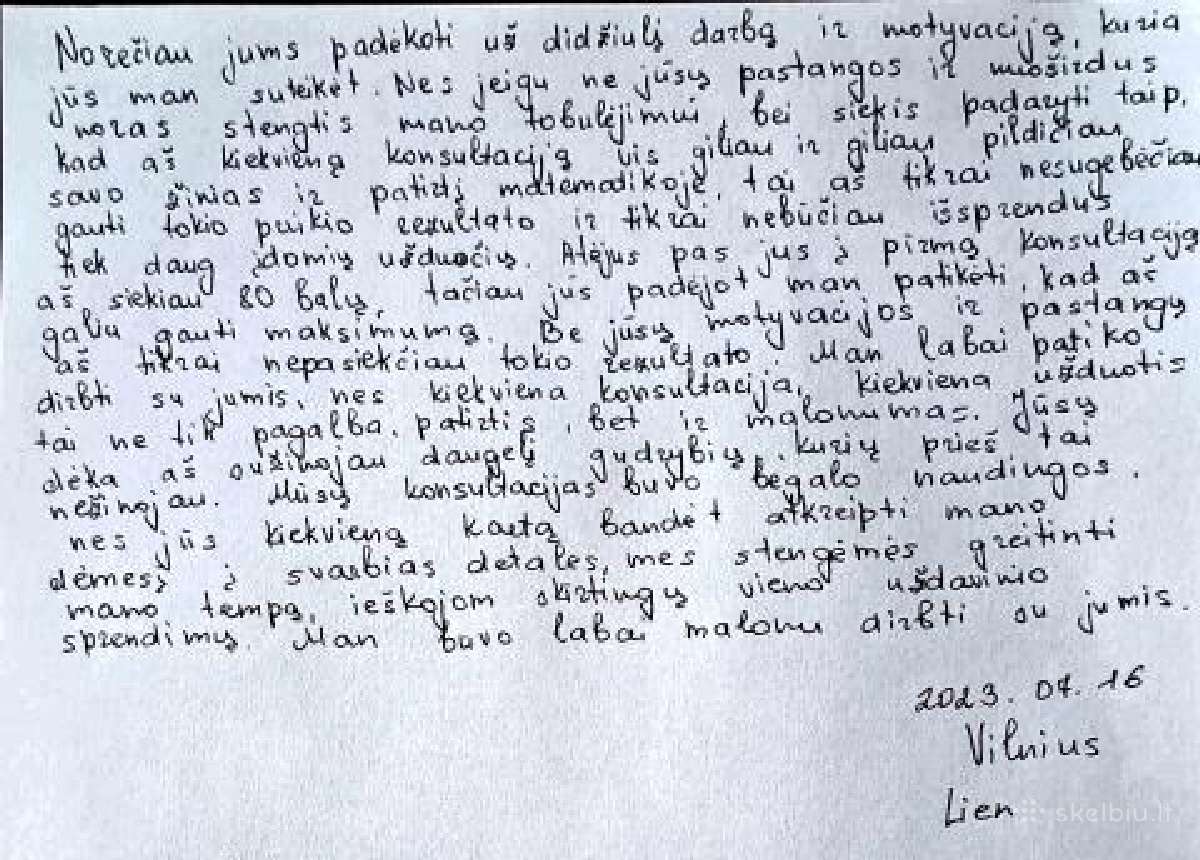 Norečiau jums padėkoti už didžiulį darbą ir motyvaciją, kuria
jūs man suteikėt. Nes jeigu ne jūsų pastangos ir nuoširdus
noras stengtis mano tobulėjimui, bei siekis padaryti taip,
kad aš kiekvieną konsultaciją vis giliau ir giliau pildičiau
savo žinias ir patirtį matematikoje, tai aš tikrai nesugebėčiau
gauti tokio puikio rezultato ir tikrai nebūčiau išsprendus
tiek daug įdomių užduočių. Atėjus pas jus į pirmą konsultaciją
aš siekiau 80 balų, tačiau jūs padėjot man patikėti, kad aš
galiu gauti maksimumą. Be jūsų motyvacijos ir pastangų
aš tikrai nepasiekčiau tokio rezultato. Man labai patiko
dirbti su jumis, nes kiekviena konsultacija, kiekviena užduotis
tai ne tik pagalba, patirtis, bet ir malonumas. Jūsų
dėka aš sužinojau daugelį gudrybių, kurių prieš tai
nežinojau. Mūsų konsultacijas buvo begalo naudingos,
nes jūs kiekvieną kartą bandėt atkreipti mano
dėmesį į svarbias detales, mes stengėmės greitinti
mano tempą, ieškojom skirtingų vieno uždavinio
sprendimų. Man buvo labai malonu dirbti su jumis.
2023.07.16
Vilnius
Lien
skelbiu.lt